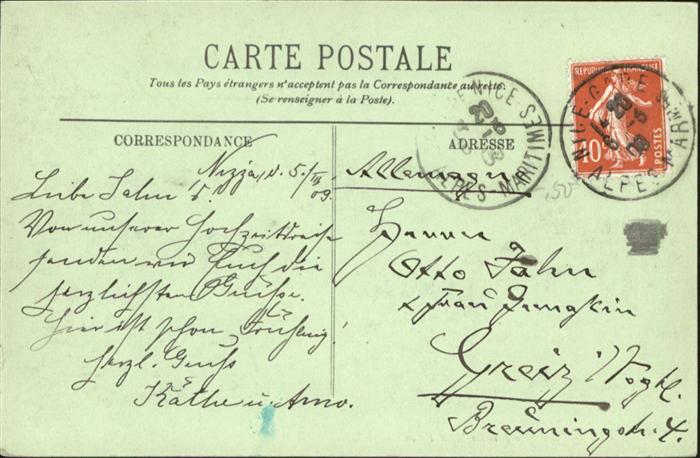 CARTE POSTALE
Tous les Pays étrangers n'acceptent pas la Correspondance au recto.
(Se renseigner à la Poste).
CORRESPONDANCE
Nizza, d. 5./III 09.
Liebe Jahn's.
Von unserer Hochzeitsreise
senden wir Euch die
herzlichsten Grüße.
Hier ist schon Frühling!
Herzl. Gruß
Käthe u. Arno.
ADRESSE
Allemagne
Herrn
Otto Jahn
u. Frau Gemahlin
Greiz i/Vogtl.
Breuningstr. 4.
NICE
ALPES MARITIMES
REPUBLIQUE FRANÇAISE
10
POSTES
NICE-GARE
ALPES MARMES